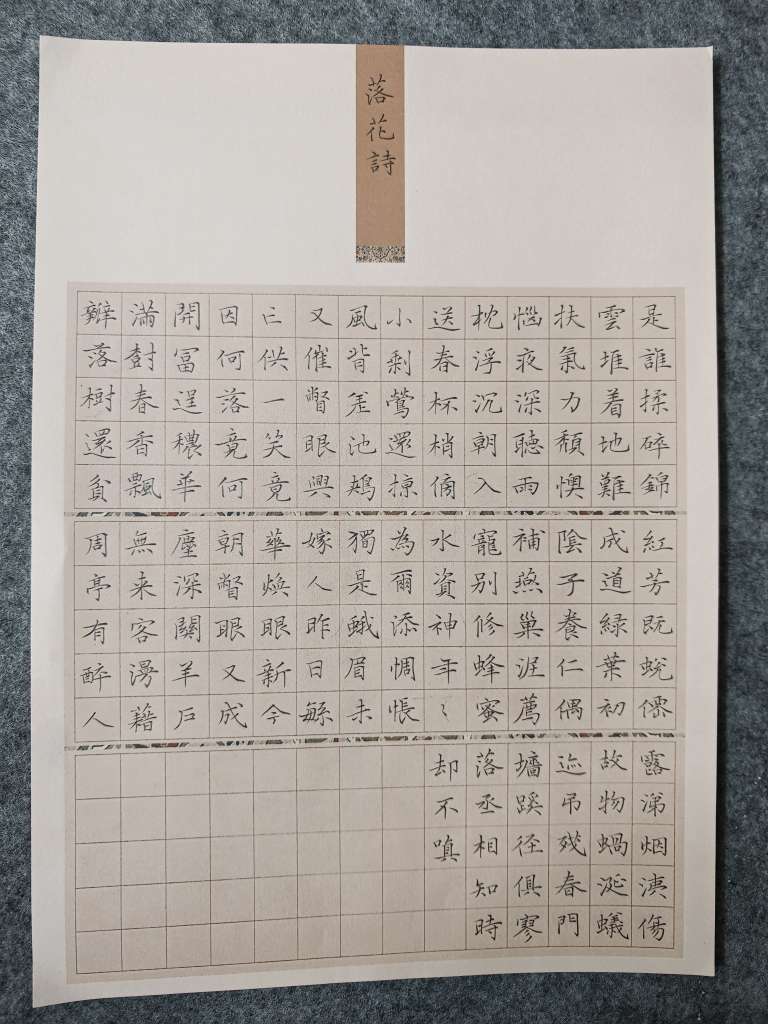 落花詩
是誰揉碎錦
雲堆着地難
扶氣力頹懊
惱夜深聽雨
枕浮沉朝入
送春杯梢傍
小剩鶯還掠
風背差池鴂
又催瞥眼興
亡供一笑竟
因何落竟何
開富逞穠華
滿樹春香飄
瓣落樹還貧
紅芳既蛻僊
成道緑葉初
陰子養仁偶
補燕巢泥薦
寵別修蜂蜜
水資神年々
為爾添惆悵
獨是蛾眉未
嫁人昨日緐
華煥眼新今
朝瞥眼又成
塵深關羊戶
無来客漫藉
周亭有醉人
露涕烟洟傷
故物蝸涎蟻
迹吊殘春門
墻蹊徑俱寥
落丞相知時
却不嗔